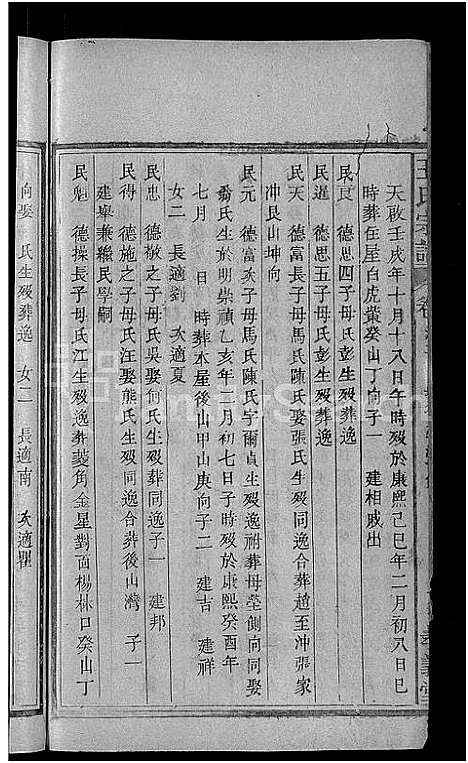 王氏宗譜 卷
天啟壬戌年十月十八日午時歿於康熙己巳年二月初八日巳
時葬在屋白虎嘴癸山丁向子一 建相戚出
民良 德思四子母氏彭生歿葬逸
民暹 德思五子母氏彭生歿葬逸
民天 德富長子母馬氏陳氏娶張氏生歿同逸合葬趙至沖張家
沖艮山坤向
民元 德富次子母馬氏陳氏字爾貞生歿逸祔葬母塋側向同娶
喬氏生於明崇禎乙亥年三月初七日子時歿於康熙癸酉年
七月 日 時葬本屋後山甲山庚向子二 建吉 建祥
女二 長適劉 次適夏
民忠 德敬之子母氏吳娶何氏生歿葬同逸子一 建邦
民得 德施之子母氏汪娶熊氏生歿同逸合葬後山灣 子一
建舉兼繼民學嗣
民魁 德操長子母氏江生歿逸葬菱角金星對面楊林口癸山丁
向娶 氏生歿葬逸 女二 長適南 次適瞿